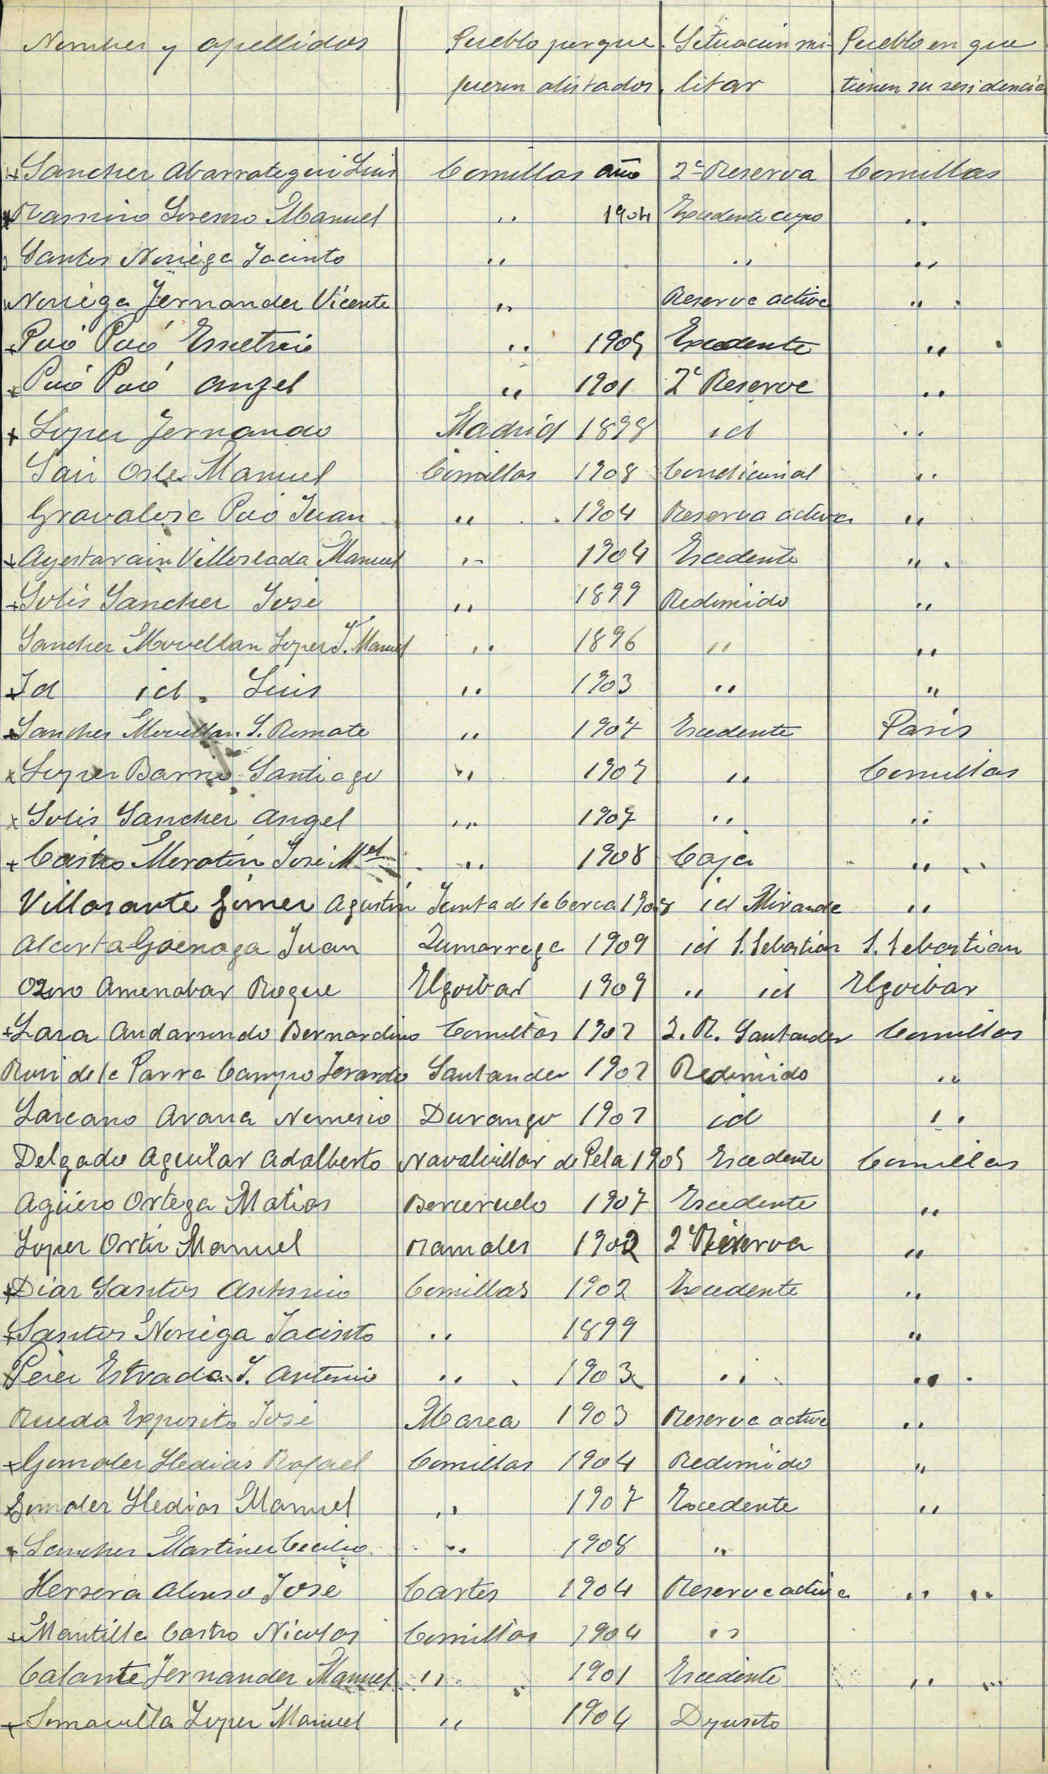 Nombres y apellidos Pueblo por que Situación mi- Pueblo en que
fueron alistados litar tienen su residencia
+ Sanchez Abarrategui Luis Comillas año 2ª Reserva Comillas
Ramiro Lorenzo Manuel " 1904 Excedente cupo "
Santos Noriega Jacinto " " "
Noriega Fernandez Vicente " Reserva activa "
+ Pció Pció Emetrio " 1905 Excedente "
+ Pció Pció Angel " 1901 2ª Reserva "
+ Lopez Fernando Madrid 1898 id "
Manuel Comillas 1908 Condicional "
Juan " 1904 Reserva activa "
+ Ayestarain Villoslada Manuel " 1904 Excedente "
+ Solis Sanchez José " 1899 Redimido "
Sanchez Movellan Lopez J. Manuel " 1896 " "
+ Id id. Luis " 1903 " "
+ Sanchez Movellan S. Romate " 1907 Excedente Paris
x Lopez Barrio Santiago " 1907 " Comillas
x Solis Sanchez Angel " 1907 " "
+ Castro Moratin José Mel " 1908 Caja "
Villasante Gomez Agustin Junta de la Cerca 1908 id Miranda "
Alcorta Goenaga Juan Zumarrega 1909 id S. Sebastian S. Sebastian
Amenabar Roque Elgoibar 1909 " id Elgoibar
+ Lara Andarundo Bernardino Comillas 1907 2. R. Santander Comillas
Ruiz de la Parra Campo Gerardo Santander 1907 Redimido "
Lazcano Arana Nemesio Durango 1907 id "
Delgado Aguilar Adalberto Navalvillar de Pela 1905 Excedente Comillas
Agüero Ortega Matias Berceruelo 1907 Excedente "
Lopez Ortiz Manuel Ramales 1902 2ª Reserva "
+ Diaz Santos Antonio Comillas 1902 Excedente "
+ Santos Noriega Jacinto " 1899 "
+ Perez Estrada J. Antonio " 1903 " "
Rueda Exposito José 1903 Reserva activa "
+ Gonzalez Hedias Rafael Comillas 1904 Redimido "
Gonzalez Hedias Manuel " 1907 Excedente "
+ Sanchez Martinez Cecilio " 1908 "
Herrera Alonso José Cartes 1904 Reserva activa " "
+ Mantilla Castro Nicolas Comillas 1904 "
Calante Fernandez Manuel " 1901 Excedente "
+ Somavilla Lopez Manuel " 1904 Deposito